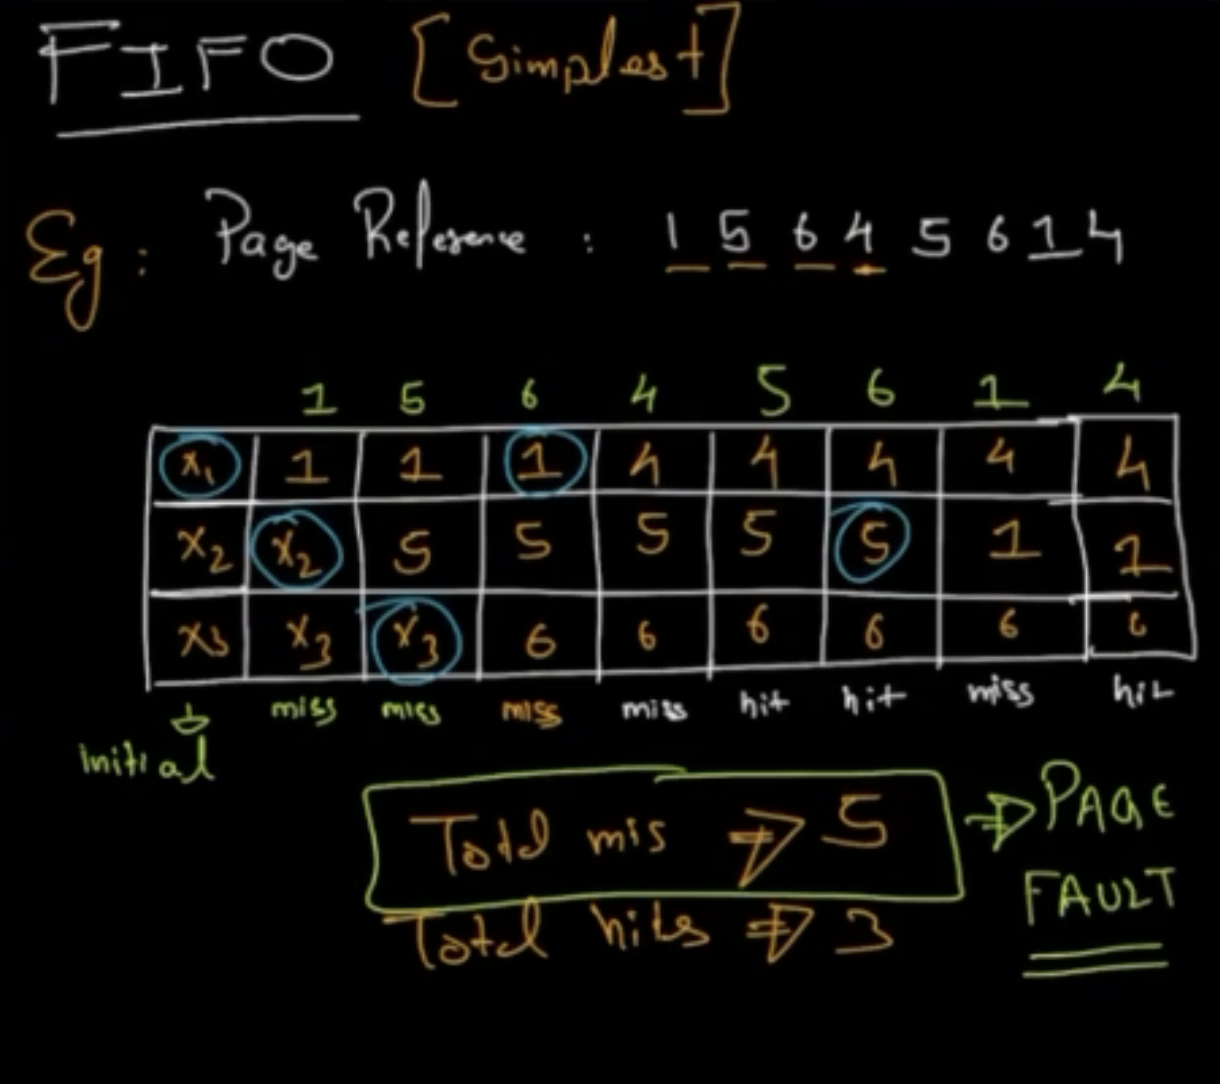 FIFO [Simplest]
Eg: Page Reference : 1 5 6 4 5 6 1 4
1 5 6 4 5 6 1 4
x1 1 1 1 4 4 4 4 4
x2 x2 5 5 5 5 5 1 1
x3 x3 x3 6 6 6 6 6 6
miss miss miss miss hit hit miss hit
Initial
Total mis ⇒ 5 ⇒ PAGE
FAULT
Total hits ⇒ 3